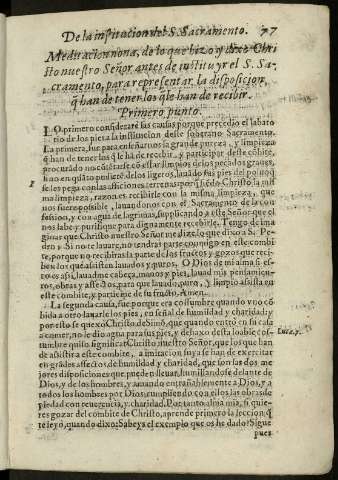 De la institucion del S. Sacramento. 77
Meditacion nona, de lo que hizo y dixo Chri
sto nuestro Señor antes de instituyr el S. Sa-
cramento, para representar la disposicion,
q̃ han de tener los q̃ le han de recibir.
Primero punto.
LO primero considerarè las causas porque precedio el labato
rio de los pies a la institucion deste soberano Sacramento.
La primera, fue para enseñarnos la grande pureza, y limpieza
q̃ han de tener los q̃ le hã de recebir, y participar deste cõbite,
procurãdo no cõtentarse cõ estar limpios de los pecados graues,
sino en quãto pudierẽ de los ligeros, lauãdo sus pies del poluo q̃
se les pega con las aficiones terrenas
1
ma limpieza, razon es recibirle con la misma limpieza, que
nos fuere possible, lauandonos con el Sacramento de la con
fession, y con agua de lagrimas, suplicando a este Señor que el
nos labe y purifique para dignamente recebirle. Tengo de ima
ginar que Christo nuestro Señor me dize, lo que dixo a S. Pe-
dro: Si no te lauare, no tendras parte conmigo en este combi
te, porque no recibiràs la parte de los frutos y gozos que reci-
ben los que assisten lauados y puros. O Dios de mi alma si es-
to es assi, lauadme cabeça, manos y pies, lauad mis pensamien-
tos, obras y afectos, para que lauado, puro, y limpio assista en
este combite, y participe de su fructo, Amen.
La segunda causa, fue porque era costumbre quando vno cõ
bida a otro lauarle los pies, en señal de humildad y charidad: y
por esto se quexò Christo de Simõ, que quando entrò en su ca
sa
costumbre quiso significar Christo nuestro Señor, que los que han
Luc. 7.
de assistir a este combite, a imitacion suya se han de exercitar
en grãdes affectos de humildad y charidad, que son las dos me
jores disposiciones que pueden lleuar, humillandose delante de
Dios, y de los hombres, y amando entrañablemente a Dios, y a
todos los hombres por Dios, cumpliendo con ellos las obras de
piedad con reuerencia, y charidad. Por tanto, alma mia, si quie-
res gozar del combite de Christo, aprende primero la leccion q̃
te leyò, quando dixo: Sabeys el exemplo que os he dado? Sigue
pues